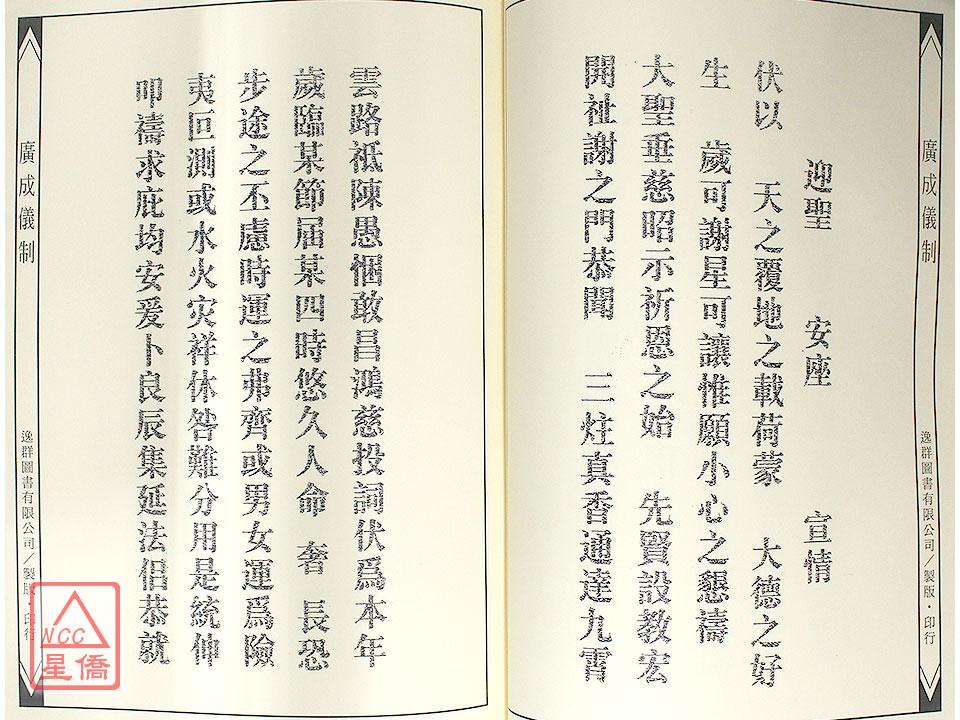 廣成儀制
逸群圖書有限公司／製版・印行
迎聖 安座 宣情
伏以 天之覆地之載荷蒙 大德之好
生 歲可謝星可讓惟願小心之懇禱
大聖垂慈昭示祈恩之始 先賢設教宏
開祉謝之門恭聞 三炷真香通達九霄
雲路祗陳愚悃敢昌鴻慈投詞伏爲本年
歲臨某節屆某四時悠久人命 奢 長恐
步途之丕慮時運之弗齊或男女運爲險
夷叵測或水火灾祥休咎難分用是統伸
叩禱求庇均安爰卜良辰集延法侣恭就
廣成儀制
逸群圖書有限公司／製版・印行
NCC
星僑